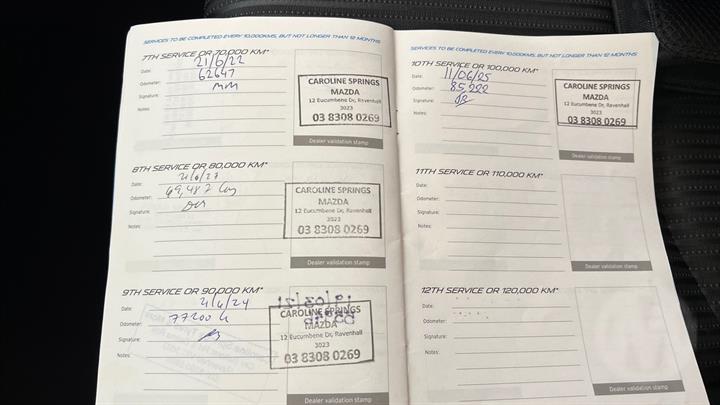 SERVICES TO BE COMPLETED EVERY 10,000KMS, BUT NOT LONGER THAN 12 MONTHS
7TH SERVICE OR 70,000 KM*
Date: 21/6/22
Odometer: 62647
Signature: MM
Notes:
CAROLINE SPRINGS
MAZDA
12 Eucumbene Dr, Ravenhall
3023
03 8308 0269
Dealer validation stamp
8TH SERVICE OR 80,000 KM*
Date:
Odometer: 69,487
Signature:
Notes:
CAROLINE SPRINGS
MAZDA
12 Eucumbene Dr, Ravenhall
3023
03 8308 0269
Dealer validation stamp
9TH SERVICE OR 90,000 KM*
Date:
Odometer: 77200
Signature:
Notes:
CAROLINE SPRINGS
MAZDA
12 Eucumbene Dr, Ravenhall
3023
03 8308 0269
Dealer validation stamp
SERVICES TO BE COMPLETED EVERY 10,000KMS, BUT NOT LONGER THAN 12 MONTHS
10TH SERVICE OR 100,000 KM*
Date: 11/06/25
Odometer: 85,222
Signature:
Notes:
CAROLINE SPRINGS
MAZDA
12 Eucumbene Dr, Ravenhall
3023
03 8308 0269
Dealer validation stamp
11TH SERVICE OR 110,000 KM*
Date:
Odometer:
Signature:
Notes:
Dealer validation stamp
12TH SERVICE OR 120,000 KM*
Date:
Odometer:
Signature:
Notes:
Dealer validation stamp